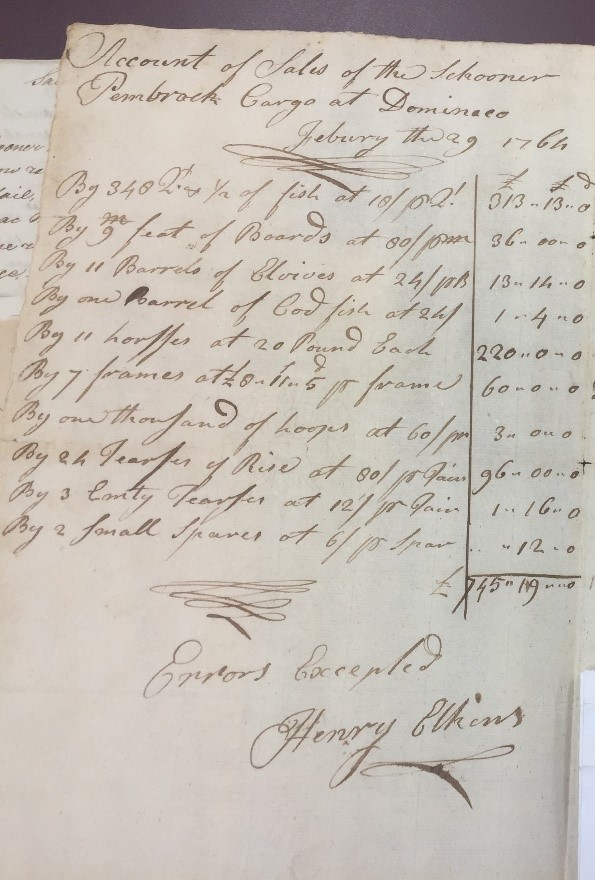 Account of Sales of the Schooner
Pembrock Cargo at Dominaco
Febury the 29 1764
£ d
By 348 Qt & 1/2 of fish at 18/ pr Qt 313 " 13 " 0
By 9 m feat of Boards at 80/ pr m 36 " 00 " 0
By 11 Barrels of Elvives at 24/ pr B 13 " 14 " 0
By one Barrel of Cod fish at 24/ 1 " 4 " 0
By 11 horsses at 20 Pound Each 220 " 0 " 0
By 7 frames at £8 " 11 " 5d pr frame 60 " 0 " 0
By one thousand of hoops at 60/ pr m 3 " 0 " 0
By 24 Tearses of Rise at 80/ pr 96 " 00 " 0
By 3 Emty Tearses at 12/ pr 1 " 16 " 0
By 2 Small Spares at 6/ pr Spar " 12 " 0
£ 745 " 19 " 0
Errors Excepted
Henry Elkins